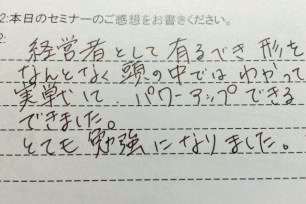 2:本日のセミナーのご感想をお書きください。
2:
経営者として有るでき形を
なんとなく頭の中ではわかって
実戦にて、パワーアップできる
できました。
とても勉強になりました。